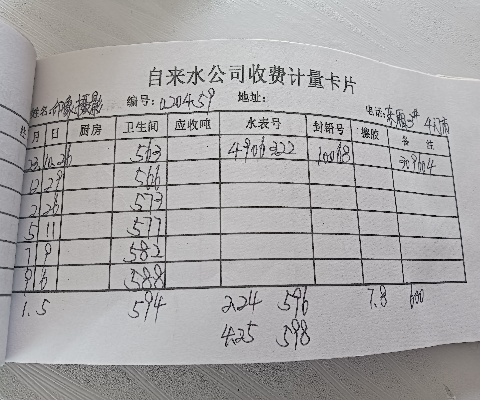 自来水公司收费计量卡片
姓名:印象摄影 编号:020459 地址:
月 日 厨房 卫生间 应收吨 水表号 封铅号 换胶 备注
10 26 563 4906322 10068
12 29 566
2 26 573
5 11 577
7 9 582
9 6 588
1.5 594 2.24 596 7.3 600
4.25 598